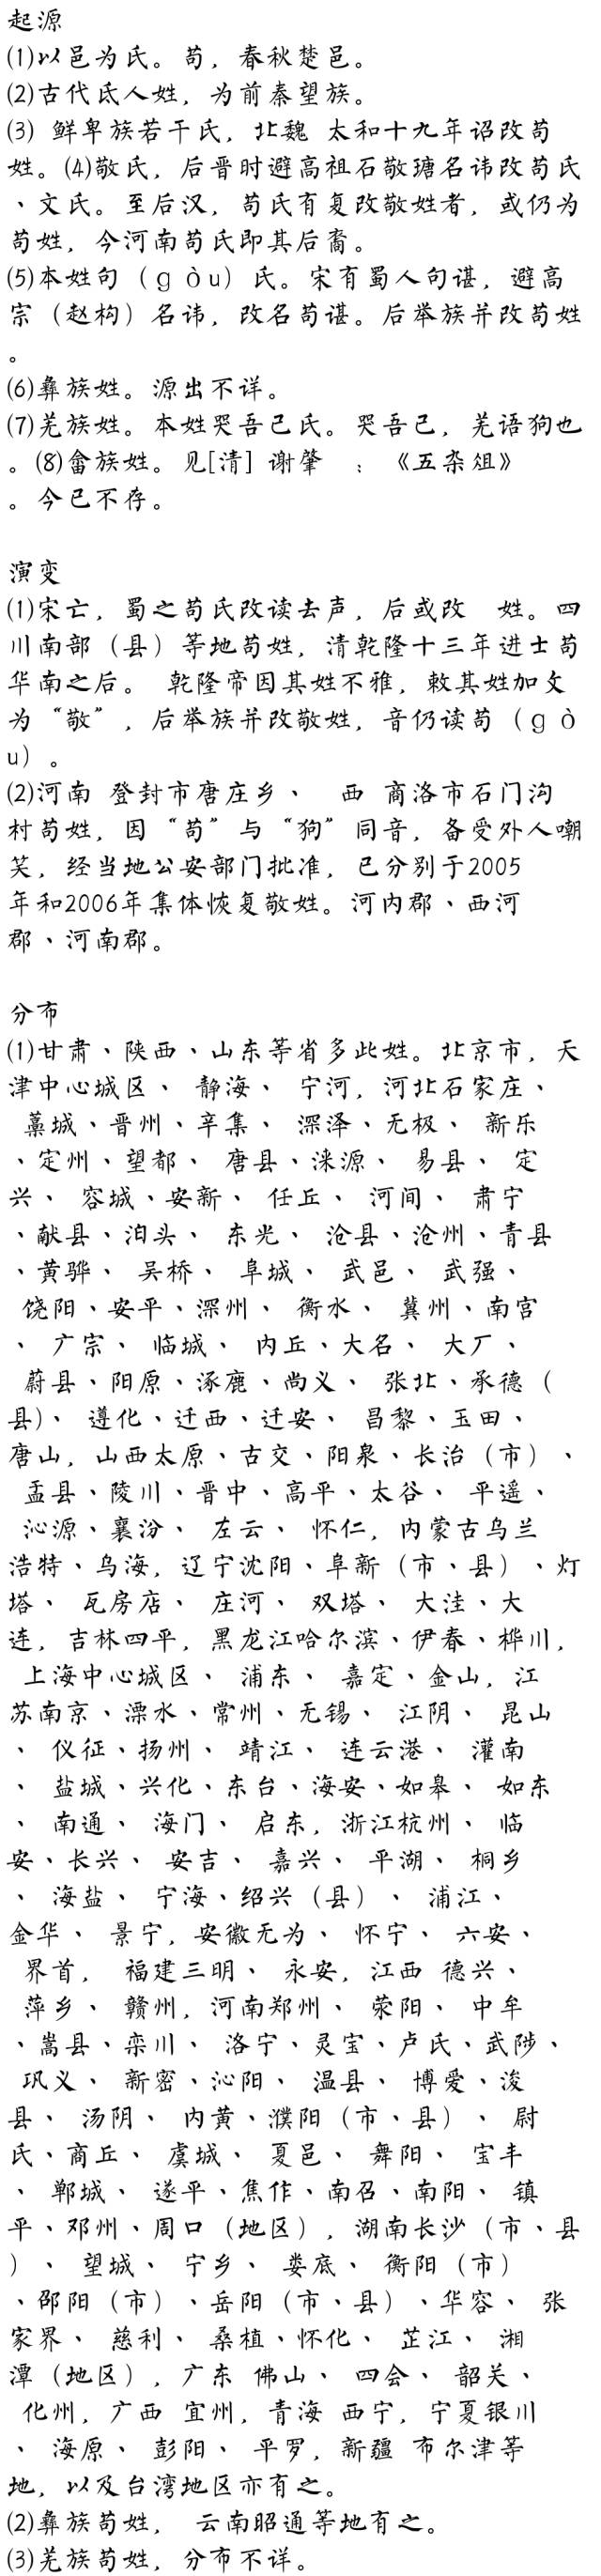 起源
(1)以邑为氏。苟，春秋楚邑。
(2)古代氐人姓，为前秦望族。
(3) 鲜卑族若干氏，北魏 太和十九年诏改苟
姓。(4)敬氏，后晋时避高祖石敬瑭名讳改苟氏
、文氏。至后汉，苟氏有复改敬姓者，或仍为
苟姓，今河南苟氏即其后裔。
(5)本姓句（gòu）氏。宋有蜀人句谌，避高
宗（赵构）名讳，改名苟谌。后举族并改苟姓
。
(6)彝族姓。源出不详。
(7)羌族姓。本姓哭吾己氏。哭吾己，羌语狗也
。(8)畲族姓。见[清] 谢肇 ；《五杂俎》
。今已不存。

演变
(1)宋亡，蜀之苟氏改读去声，后或改 姓。四
川南部（县）等地苟姓，清乾隆十三年进士苟
华南之后。 乾隆帝因其姓不雅，敕其姓加文
为“敬”，后举族并改敬姓，音仍读苟（gò
u）。
(2)河南 登封市唐庄乡、 西 商洛市石门沟
村苟姓，因“苟”与“狗”同音，备受外人嘲
笑，经当地公安部门批准，已分别于2005
年和2006年集体恢复敬姓。河内郡、西河
郡、河南郡。

分布
(1)甘肃、陕西、山东等省多此姓。北京市，天
津中心城区、 静海、 宁河，河北石家庄、
藁城、晋州、辛集、 深泽、无极、 新乐
、定州、望都、 唐县、涞源、 易县、 定
兴、 容城、安新、 任丘、 河间、 肃宁
、献县、泊头、 东光、 沧县、沧州、青县
、黄骅、 吴桥、 阜城、 武邑、 武强、
饶阳、安平、深州、 衡水、 冀州、南宫
、 广宗、 临城、 内丘、大名、 大厂、
蔚县、阳原、涿鹿、尚义、 张北、承德（
县）、 遵化、迁西、迁安、 昌黎、玉田、
唐山，山西太原、古交、阳泉、长治（市）、
盂县、陵川、晋中、高平、太谷、 平遥、
沁源、襄汾、 左云、 怀仁，内蒙古乌兰
浩特、乌海，辽宁沈阳、阜新（市、县）、灯
塔、 瓦房店、 庄河、 双塔、 大洼、大
连，吉林四平，黑龙江哈尔滨、伊春、桦川，
上海中心城区、 浦东、 嘉定、金山，江
苏南京、溧水、常州、无锡、 江阴、 昆山
、 仪征、扬州、 靖江、 连云港、 灌南
、 盐城、兴化、东台、海安、如皋、 如东
、 南通、 海门、 启东，浙江杭州、 临
安、长兴、 安吉、 嘉兴、 平湖、 桐乡
、 海盐、 宁海、绍兴（县）、 浦江、
金华、 景宁，安徽无为、 怀宁、 六安、
界首， 福建三明、 永安，江西 德兴、
萍乡、 赣州，河南郑州、 荥阳、 中牟
、嵩县、栾川、 洛宁、灵宝、卢氏、武陟、
巩义、 新密、沁阳、 温县、 博爱、浚
县、 汤阴、 内黄、濮阳（市、县）、 尉
氏、商丘、 虞城、 夏邑、 舞阳、 宝丰
、 郸城、 遂平、焦作、南召、南阳、 镇
平、邓州、周口（地区），湖南长沙（市、县
）、 望城、 宁乡、 娄底、 衡阳（市）
、邵阳（市）、岳阳（市、县）、华容、 张
家界、 慈利、 桑植、怀化、 芷江、 湘
潭（地区），广东 佛山、 四会、 韶关、
化州，广西 宜州，青海 西宁，宁夏银川
、 海原、 彭阳、 平罗，新疆 布尔津等
地，以及台湾地区亦有之。
(2)彝族苟姓， 云南昭通等地有之。
(3)羌族苟姓，分布不详。